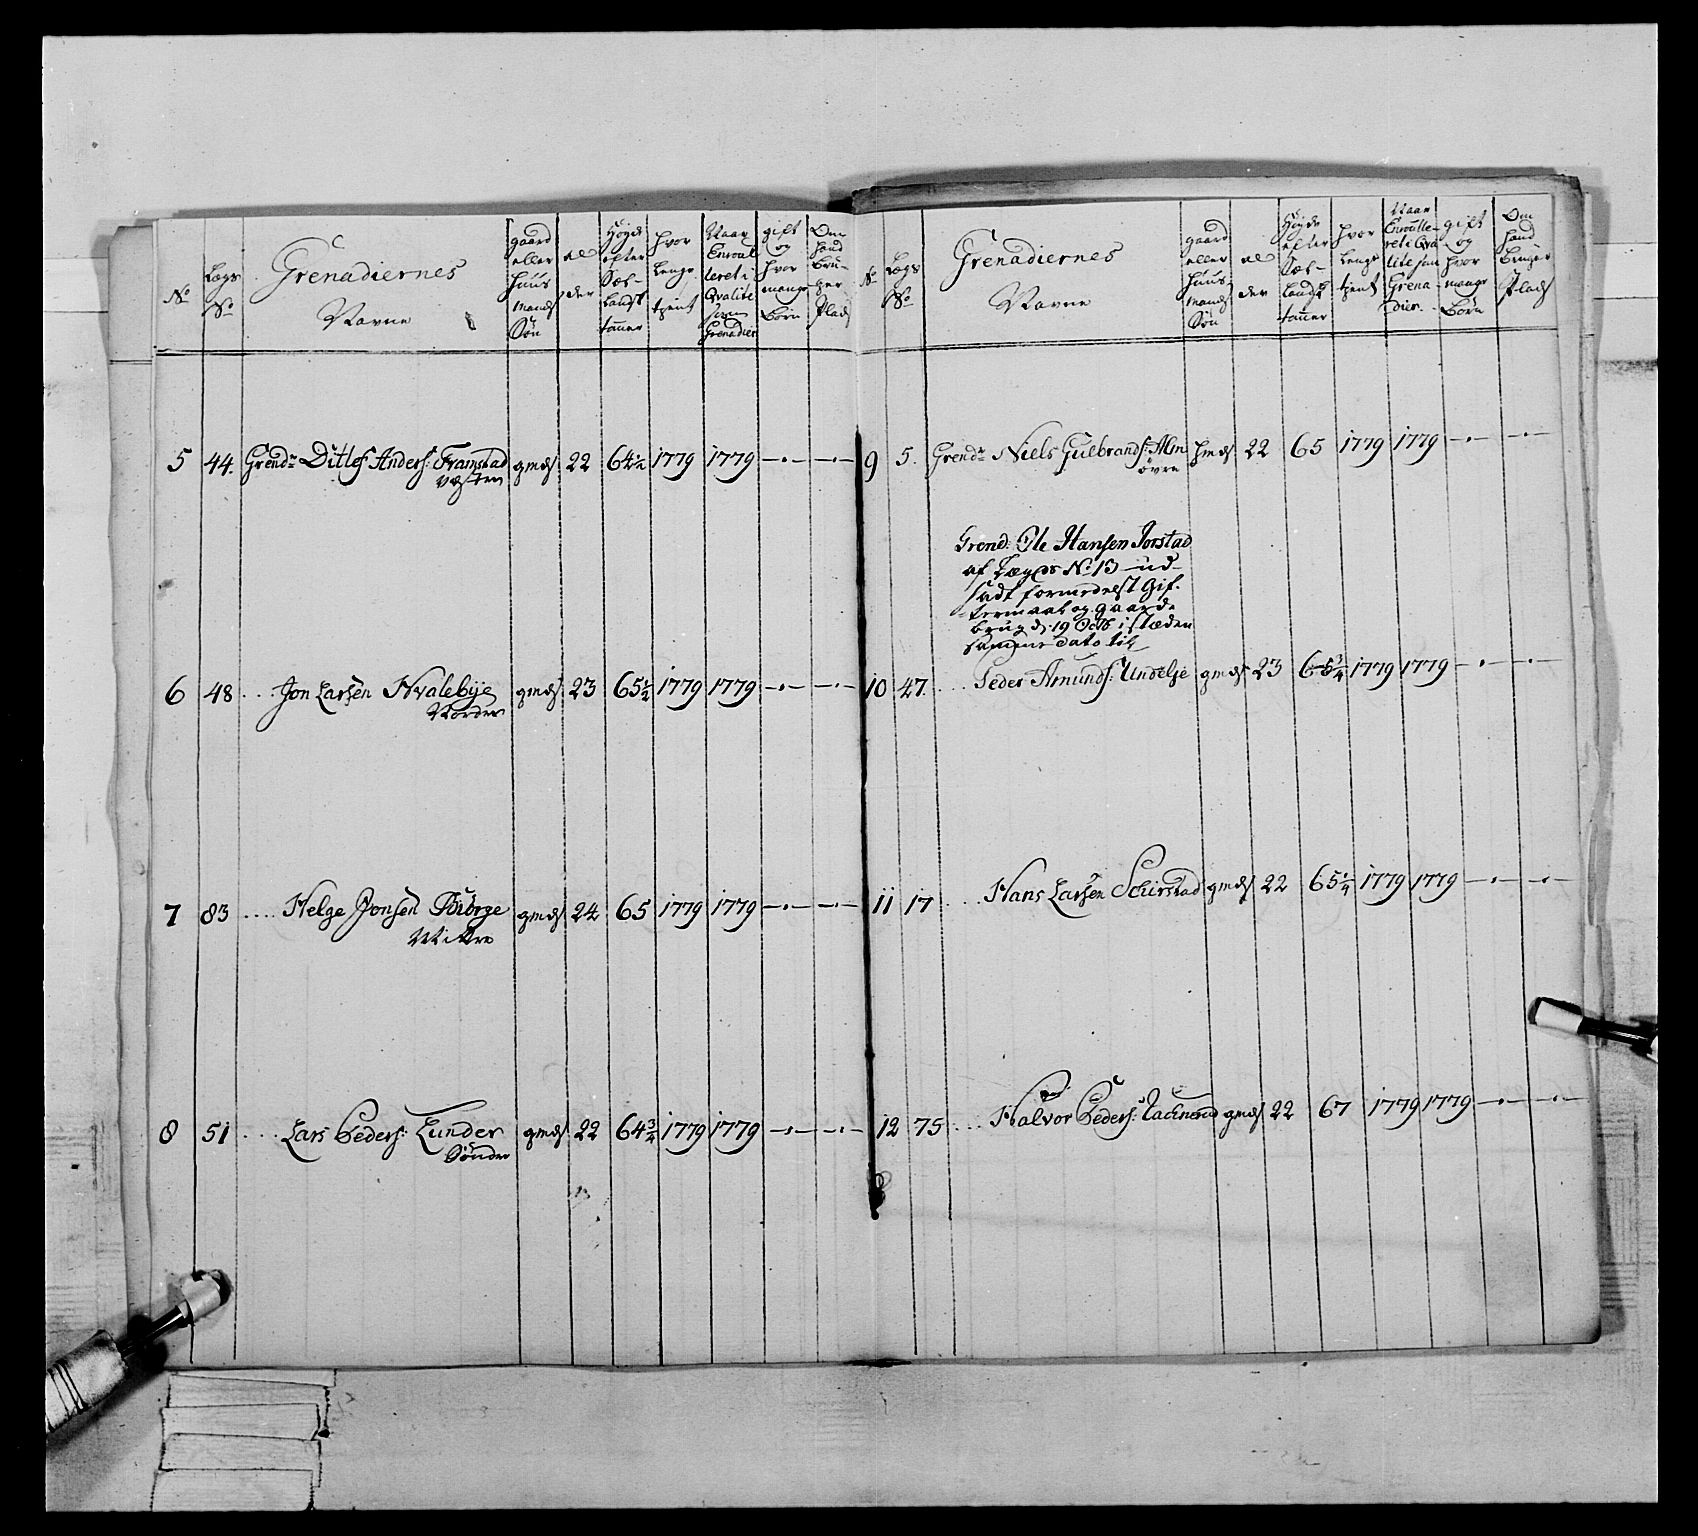 No
Lægs No
Grenadiernes Navne
gaard eller Huus mands Søn
al der
Høyde efter Sæl- landsk tommer
hvor lenge tient
Naar Enroul leret i Qvalite som Grenadier
gift og hvor mange Børn
Om hand Bru- ger Plads
5 44. Grendr Ditlef Anders: Framstad gmds 22 64½ 1779 1779 —.— —.—
vesten
6 48 ... Jon Larsen Hvalebÿe gmds 23 65½ 1779 1779 —.— —.—
Norder
7 83 .... Helge Jonsen Biørge gmds 24 65 1779 1779 —.— —.—
Mittre
8 51 .... Lars Peders: Lunder gmds 22 64¾ 1779 1779 —.— —.—
Sønder
No
Lægs No
Grenadiernes Navne
gaard eller Huus mands Søn
al der
Høyde efter Sæl- landsk tommer
hvor lenge tient
Naar Enroulle- ret i Qva lite som Grena dier.
gift og hvor mange Børn
Om hand Bruger Plads
9 5. Grendr Niels Gulbrands: Alm hmds 22 65 1779 1779 —.— —.—
øvre
Grend: Ole Hansen Jorstad
af Lægds No 13 ud-
sadt formedelst Gif-
termaal og gaards
brug d: 19 Octb i stæden
samme dato til
10 47 .... Peder Amunds: Undelse gmds 23 65¾ 1779 1779 —.— —.—
11 17 .... Hans Larsen Schirstad gmds 22 65¼ 1779 1779 —.— —.—
12 75 .... Halvor Peders: gmds 22 67 1779 1779 —.— —.—